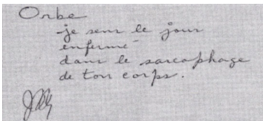 Orbe
je sens le jour
enfermé
dans le sarcophage
de ton corps.